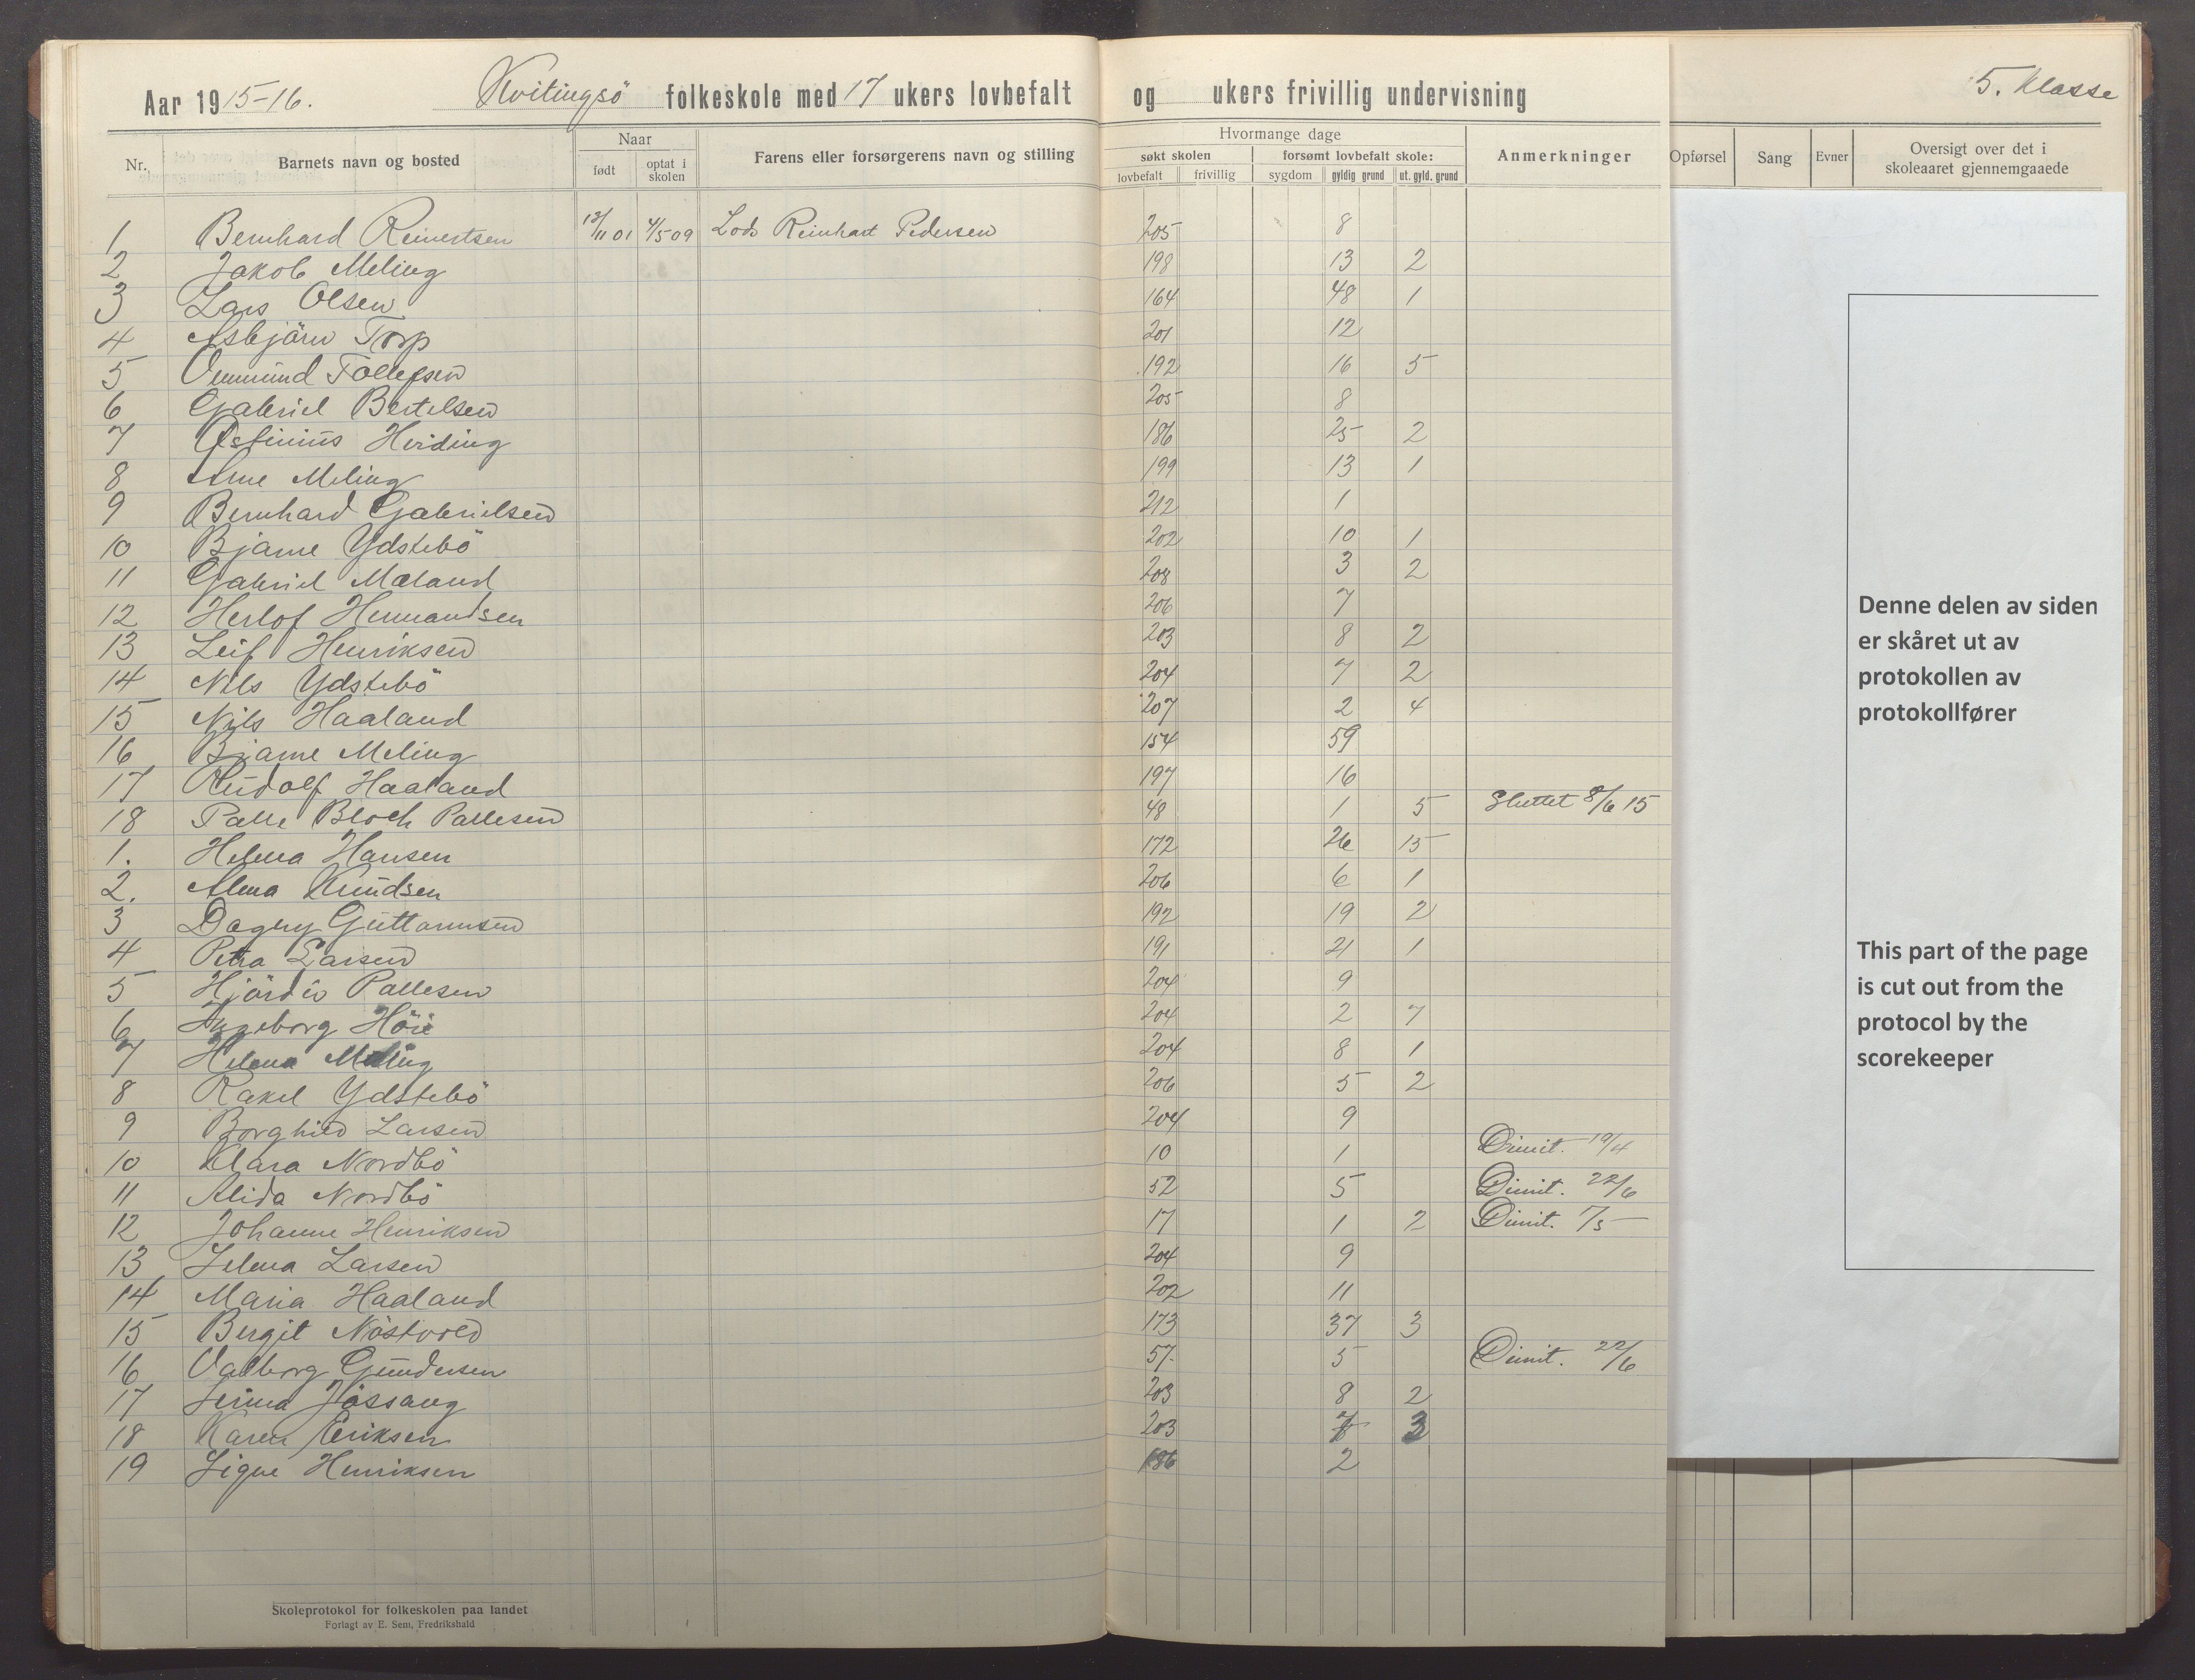 Aar 1915-16. Kvitingsö folkeskole med 17 ukers lovbefalt og ukers frivillig undervisning
5. Klasse
Nr. Barnets navn og bosted Naar født optat i skolen Farens eller forsørgerens navn og stilling Hvormange dage søkt skolen lovbefalt frivillig forsømt lovbefalt skole: sygdom gyldig grund ut. gyld. grund Anmerkninger Opførsel Sang Evner Oversigt over det i skoleaaret gjennemgaaede
1 Bernhard Reinertsen 13/11 01 4/5 09 Lods Reinhart Pedersen 205 8
2 Jakob Meling 198 13 2
3 Lars Olsen 164 48 1
4 Asbjörn Torp 201 12
5 Ommund Tollefsen 192 16 5
6 Gabriel Bertelsen 205 8
7 Asfinius Heiding 186 25 2
8 Arne Meling 199 13 1
9 Bernhard Gabrielsen 212 1
10 Bjarne Ydstebö 202 10 1
11 Gabriel Mæland 208 3 2
12 Herlof Hermandsen 206 7
13 Leif Henriksen 203 8 2
14 Nils Ydstebö 204 7 2
15 Nils Haaland 207 2 4
16 Bjarne Meling 154 59
17 Rudolf Haaland 197 16
18 Palle Bloch Pallesen 48 1 5 Sluttet 8/6 15
1. Helena Hansen 172 26 15
2. Alma Knudsen 206 6 1
3 Dagny Guttormsen 192 19 2
4 Petra Larsen 191 21 1
5 Hjördis Pallesen 204 9
6 Ingeborg Höie 204 2 7
7 Helena Meling 204 8 1
8 Rakel Ydstebö 206 5 2
9 Borghild Larsen 204 9
10 Klara Nordbö 10 1 Dimit. 19/4
11 Alida Nordbö 52 5 Dimit. 22/6
12 Johanne Henriksen 17 1 2 Dimit. 7/5
13 Selma Larsen 204 9
14 Maria Haaland 202 11
15 Bergit Nåstvold 173 37 3
16 Valborg Gundersen 57. 5 Dimit. 22/6
17 Serina Jössang 203 8 2
18 Karen Eriksen 203 7 3
19 Signe Henriksen 186 2
Skoleprotokol for folkeskolen paa landet
Forlagt av E. Sem, Fredrikshald
Denne delen av siden
er skåret ut av
protokollen av
protokollfører
This part of the page
is cut out from the
protocol by the
scorekeeper